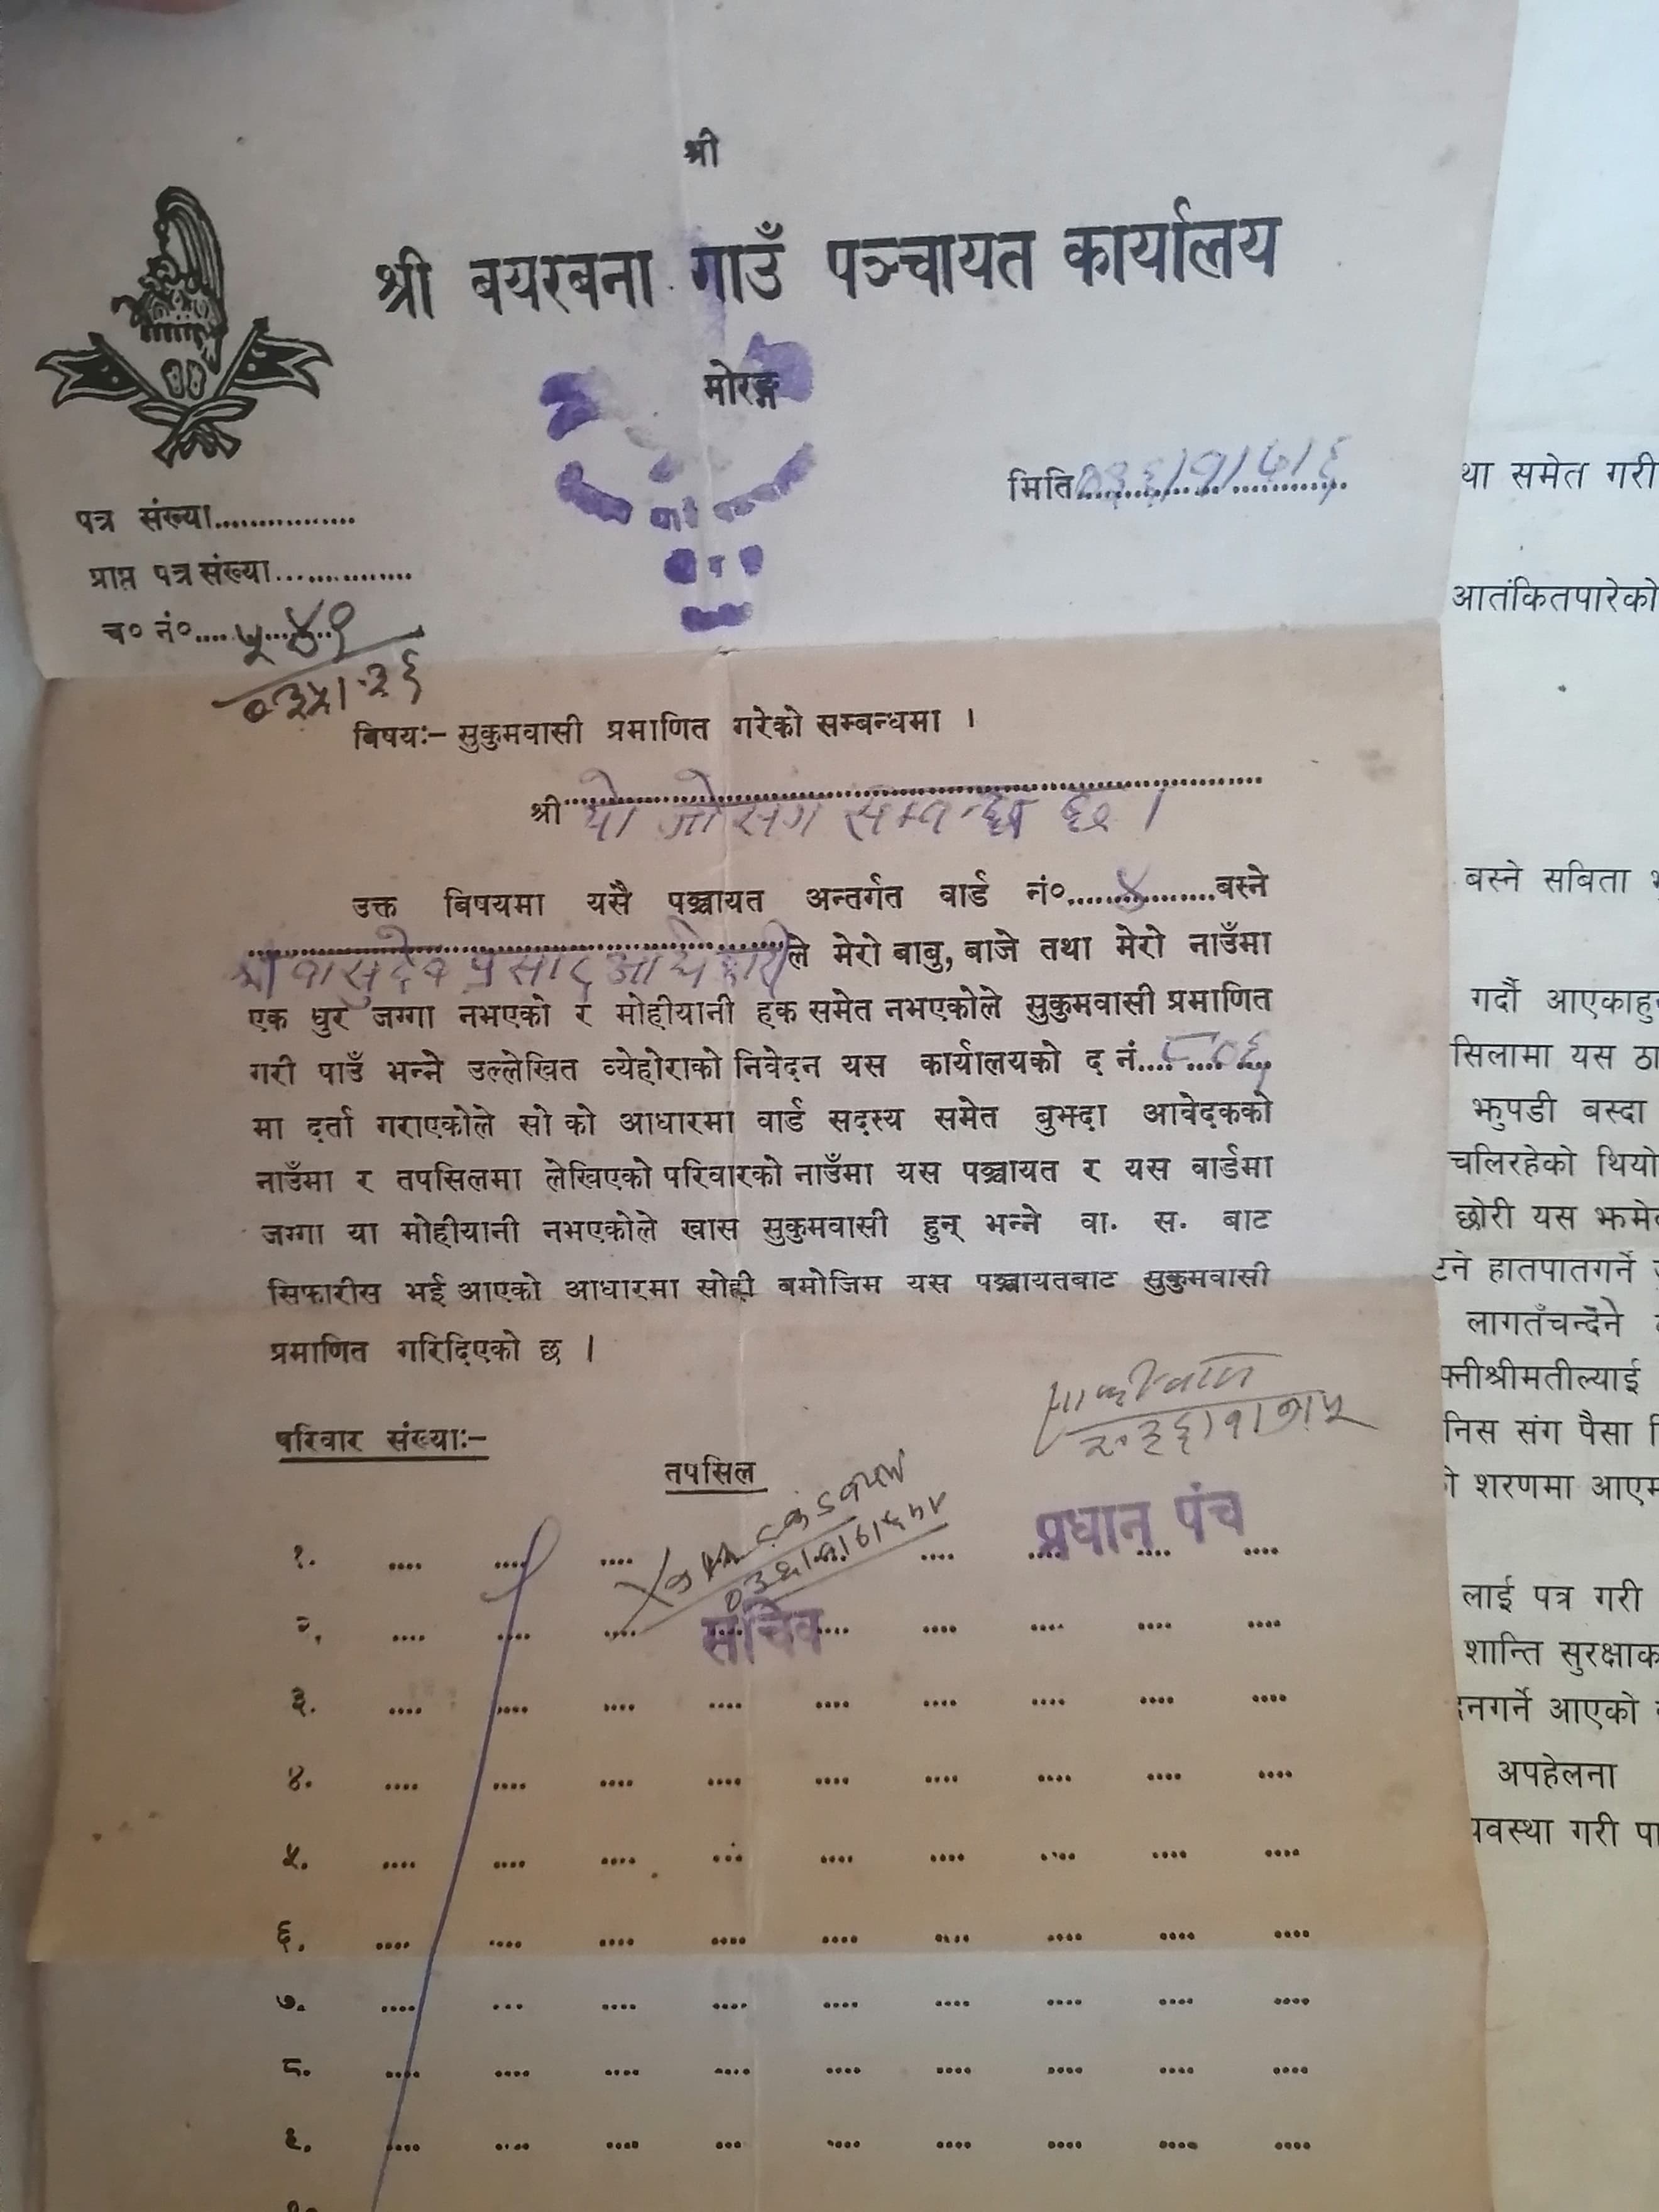 श्री
श्री बयरबना गाउँ पञ्चायत कार्यालय
मोरङ्ग
मिति ०३६।१।७।६
पत्र संख्या................
प्राप्त पत्र संख्या...............
च० नं०.... ५४१
०३५।३६
बिषयः– सुकुमवासी प्रमाणित गरेको सम्बन्धमा ।
श्री यो जो संग सम्बन्ध छ ।
उक्त बिषयमा यसै पञ्चायत अन्तर्गत वार्ड नं०....४....बस्ने
श्री वासुदेव प्रसाद अधिकारी ले मेरो बाबु, बाजे तथा मेरो नाउँमा
एक धुर जग्गा नभएको र मोहीयानी हक समेत नभएकोले सुकुमवासी प्रमाणित
गरी पाउँ भन्ने उल्लेखित व्येहोराको निवेदन यस कार्यालयको द नं....८०६
मा दर्ता गराएकोले सो को आधारमा वार्ड सदस्य समेत बुझ्दा आवेदकको
नाउँमा र तपसिलमा लेखिएको परिवारको नाउँमा यस पञ्चायत र यस बार्डमा
जग्गा या मोहीयानी नभएकोले खास सुकुमवासी हुन् भन्ने वा. स. बाट
सिफारीस भई आएको आधारमा सोही बमोजिम यस पञ्चायतबाट सुकुमवासी
प्रमाणित गरिदिएको छ ।
परिवार संख्याः–
तपसिल
प्रधान पंच
सचिव
१.
२.
३.
४.
५.
६.
७.
८.
९.
था समेत गरी
आतंकितपारेको
बस्ने सबिता
गर्दौ आएकाहु
सिलामा यस ठा
झुपडी बस्दा
चलिरहेको थियो
छोरी यस झमे
टने हातपातगर्ने
लागतँचन्देने
फ्नीश्रीमतील्याई
निस संग पैसा
शरणमा आएम
लाई पत्र गरी
शान्ति सुरक्षाक
दनगर्ने आएको
अपहेलना
यवस्था गरी पा